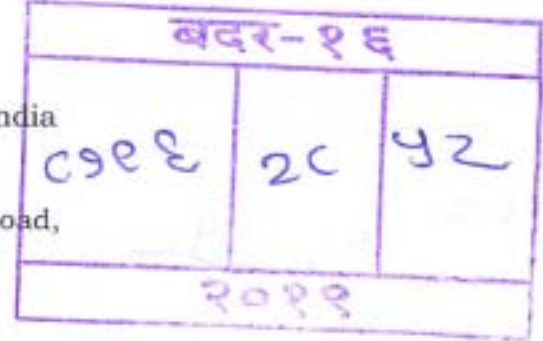 बदर-१६
ndia
२८ ५२
oad,
२०११